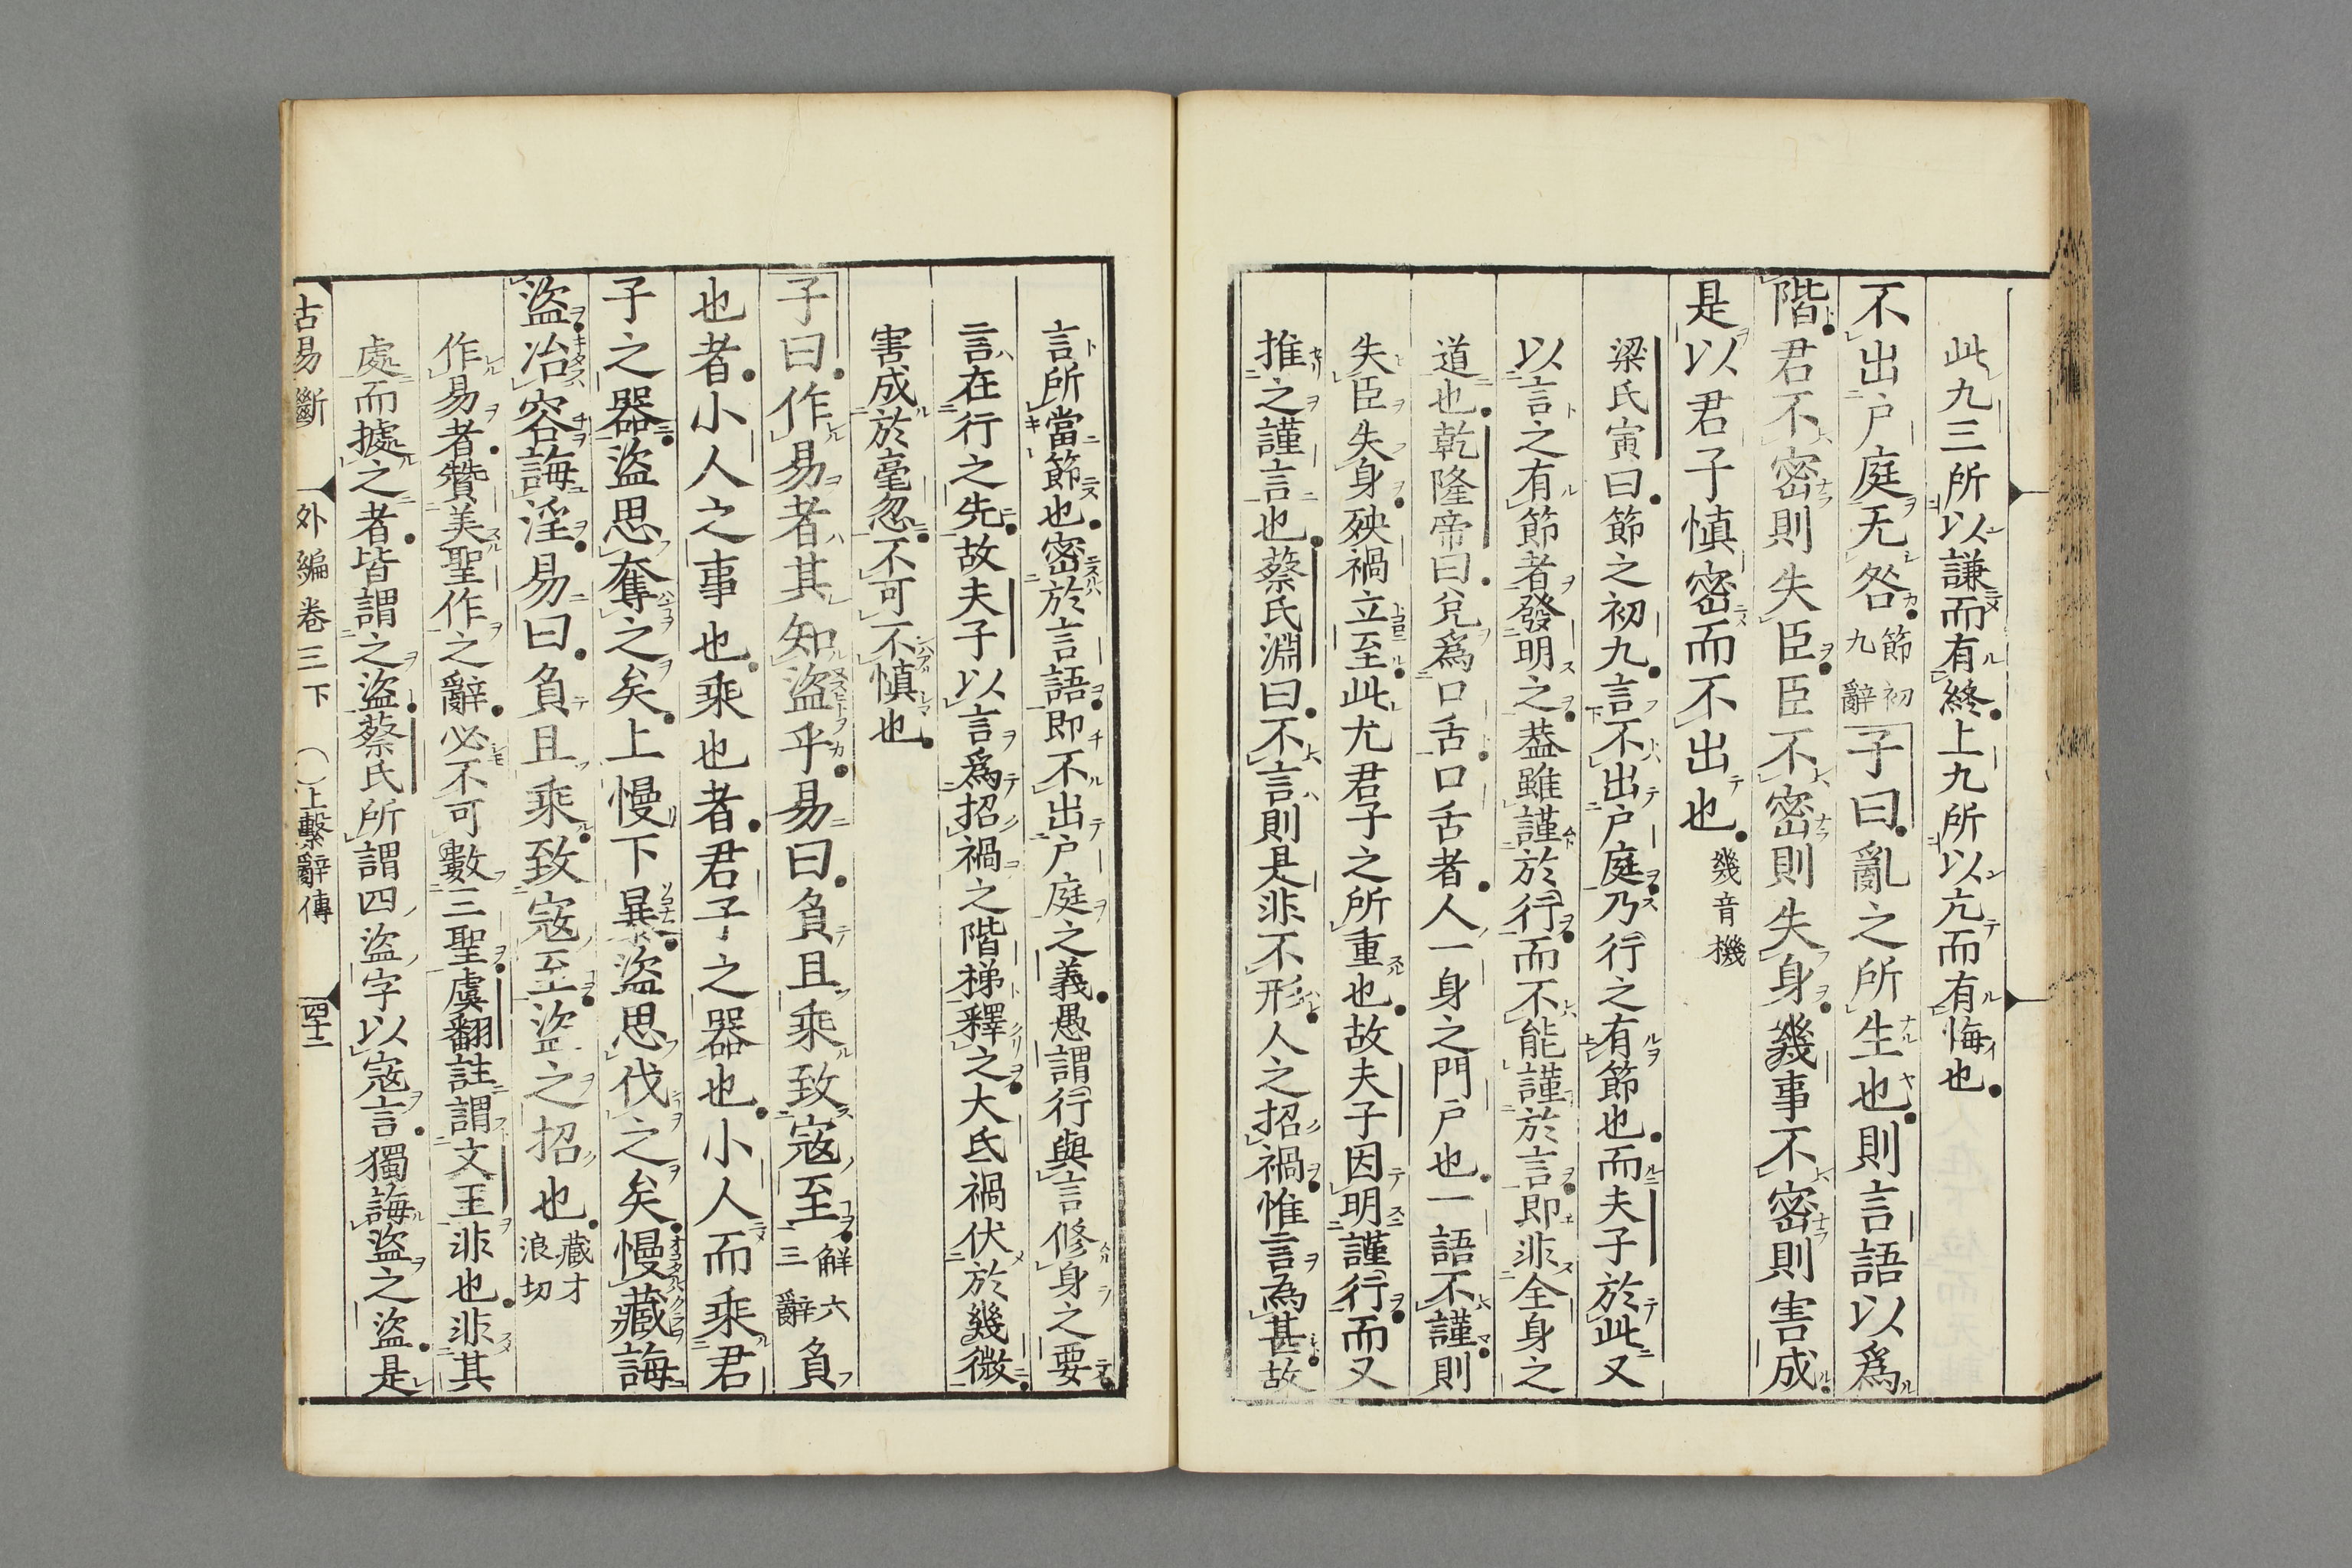 此九三所以謙而有終上九所以亢而有悔也
不出户庭无咎節初九辭子曰亂之所生也則言語以爲
階君不密則失臣臣不密則失身幾事不密則害成
是以君子慎密而不出也幾音機
梁氏寅曰節之初九言不出户庭乃行之有節也而夫子於此又
以言之有節者發明之葢雖謹於行而不能謹於言即非全身之
道也乾隆帝曰兌爲口舌口舌者人一身之門户也一語不謹則
失臣失身殃禍立至此尤君子之所重也故夫子因明謹行而又
推之謹言也蔡氏淵曰不言則是非不形人之招禍惟言為甚故
言所當節也密於言語即不出户庭之義愚謂行與言修身之要
言在行之先故夫子以言爲招禍之階梯釋之大氐禍伏於幾微
害成於毫忽不可不慎也
子曰作易者其知盜乎易曰負且乘致寇至解六三辭負
也者小人之事也乘也者君子之器也小人而乘君
子之器盜思奪之矣上慢下暴盜思伐之矣慢藏誨
盜冶容誨淫易曰負且乘致寇至盜之招也藏才浪切
作易者贊美聖作之辭必不可數三聖虞翻註謂文王非也非其
處而據之者皆謂之盜蔡氏所謂四盜字以寇言獨誨盜之盜是
古易斷 外編卷三下 上繫辭傳 四十二